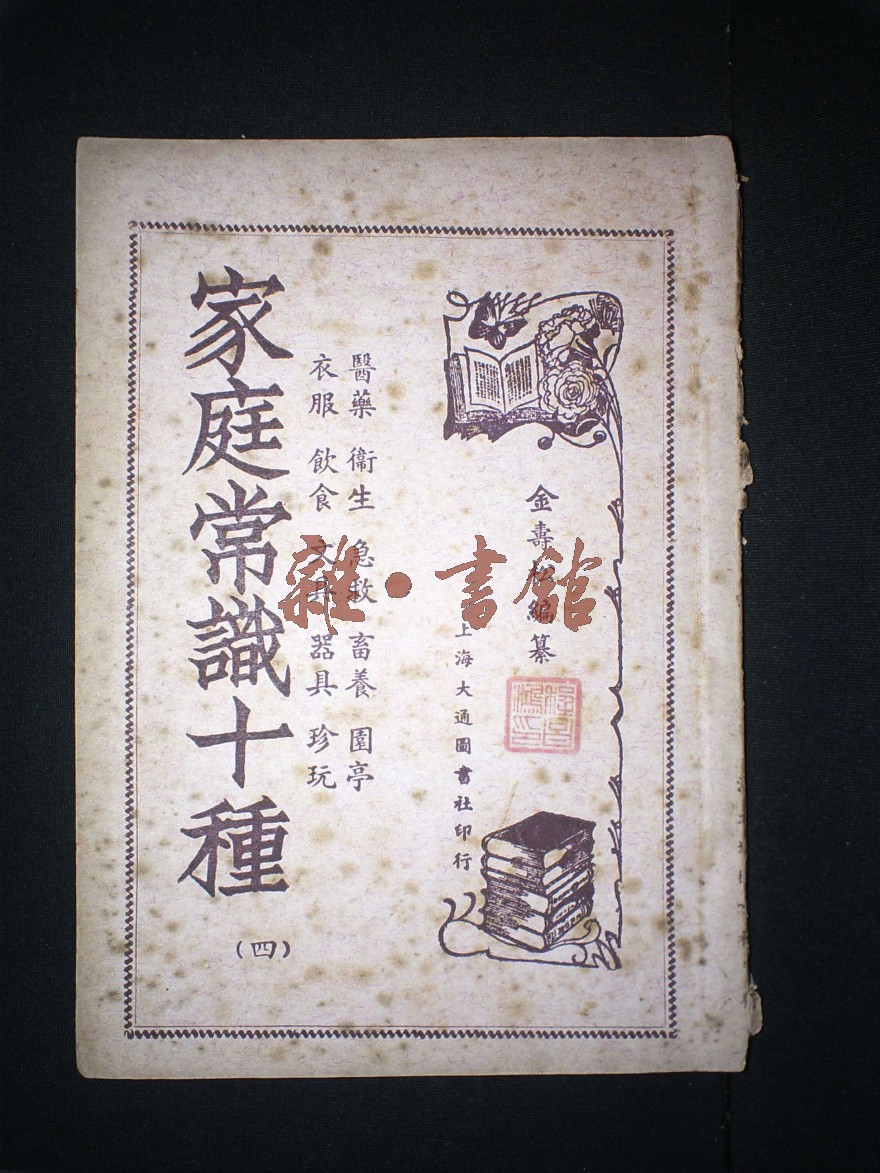 金壽松編纂
上海大通圖書社印行
醫藥 衞生 急救 畜養 園亭
衣服 飲食 文具 器具 珍玩
家庭常識十種
(四)
雜·書館